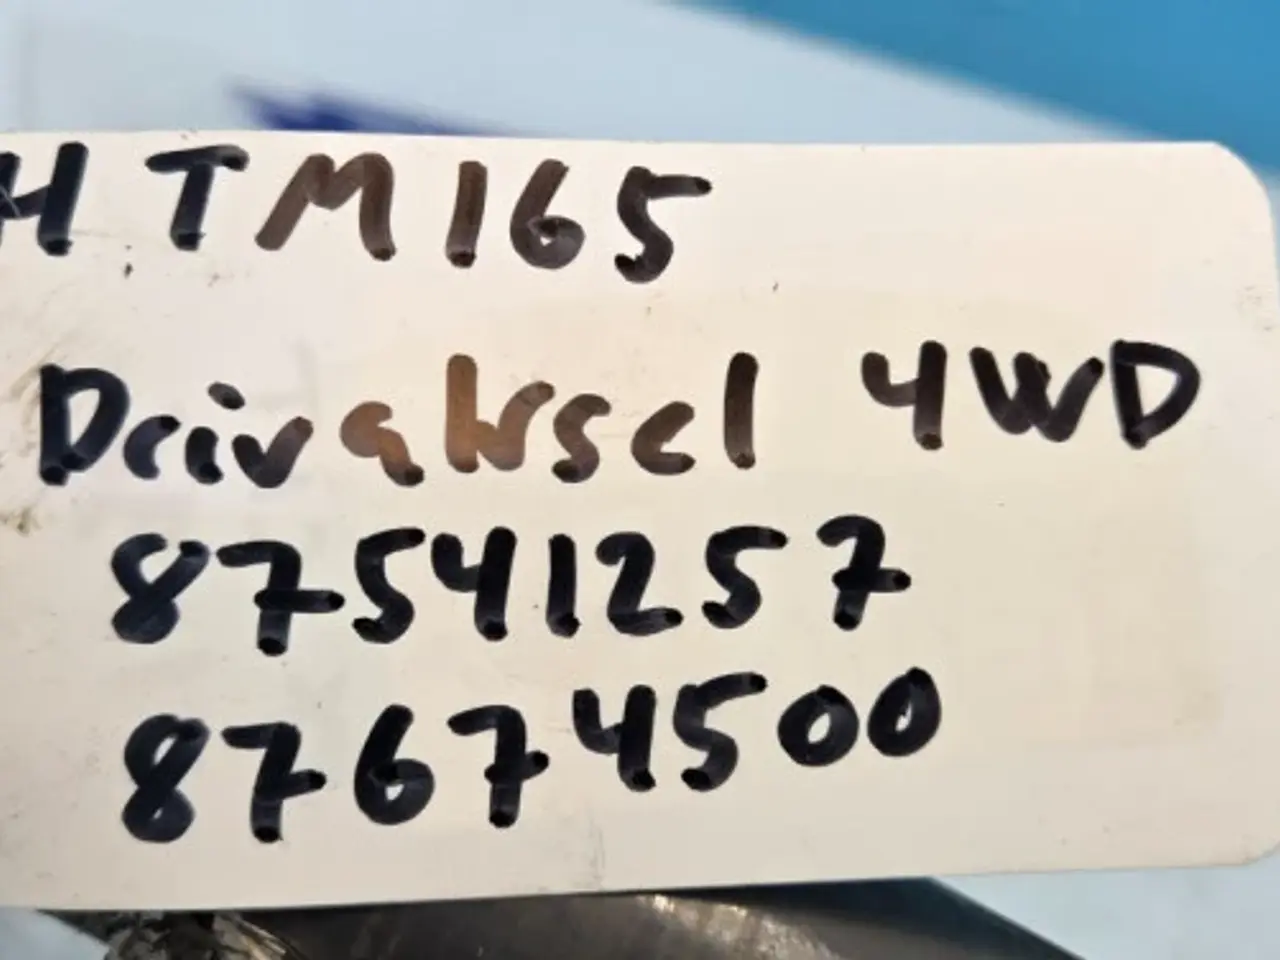 H TM165
Drivaksel 4WD
87541257
87674500